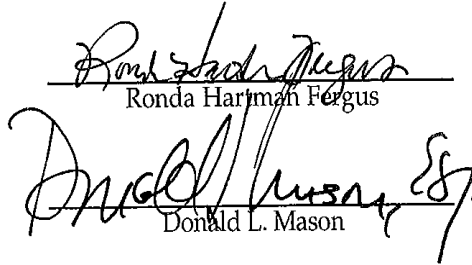 Ronda Hartman Fergus
Ronda Hartman Fergus
Donald L. Mason, Esq.
Donald L. Mason